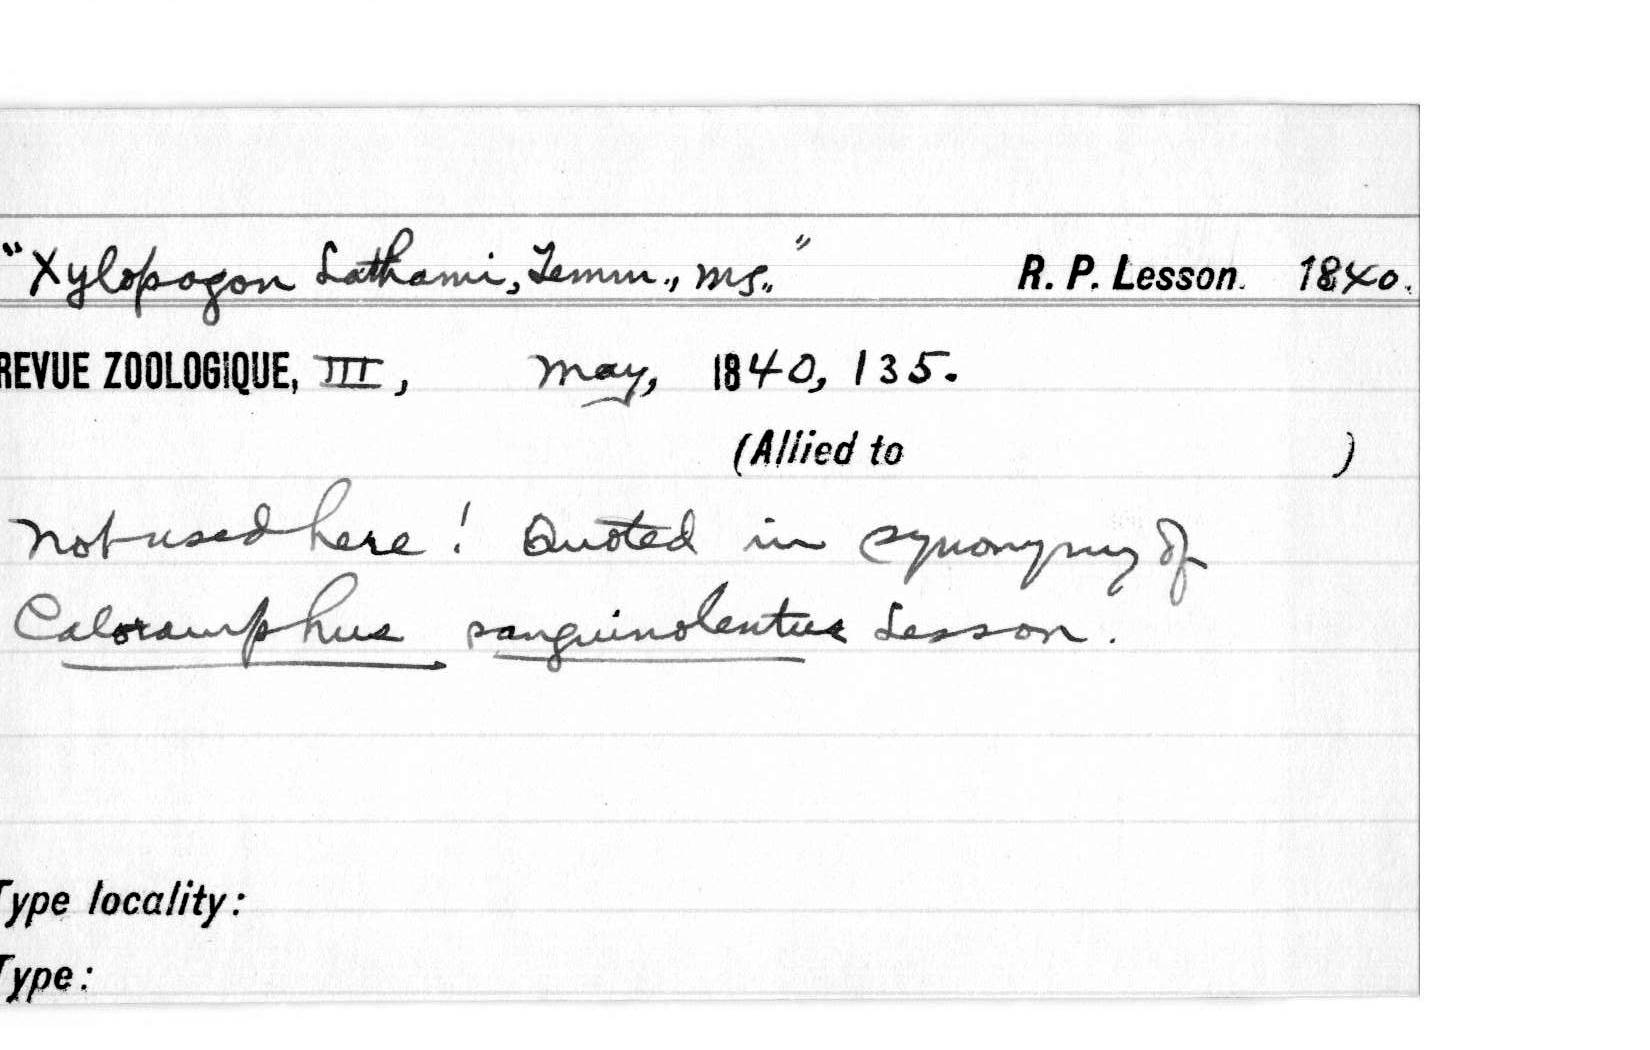 "Xylopogon Lathami, Temm., MS." R. P. Lesson. 1840.
REVUE ZOOLOGIQUE, III, May, 1840, 135.
(Allied to )
Not used here! Quoted in synonymy of
Caloramphus sanguinolentus Lesson.
Type locality:
Type: